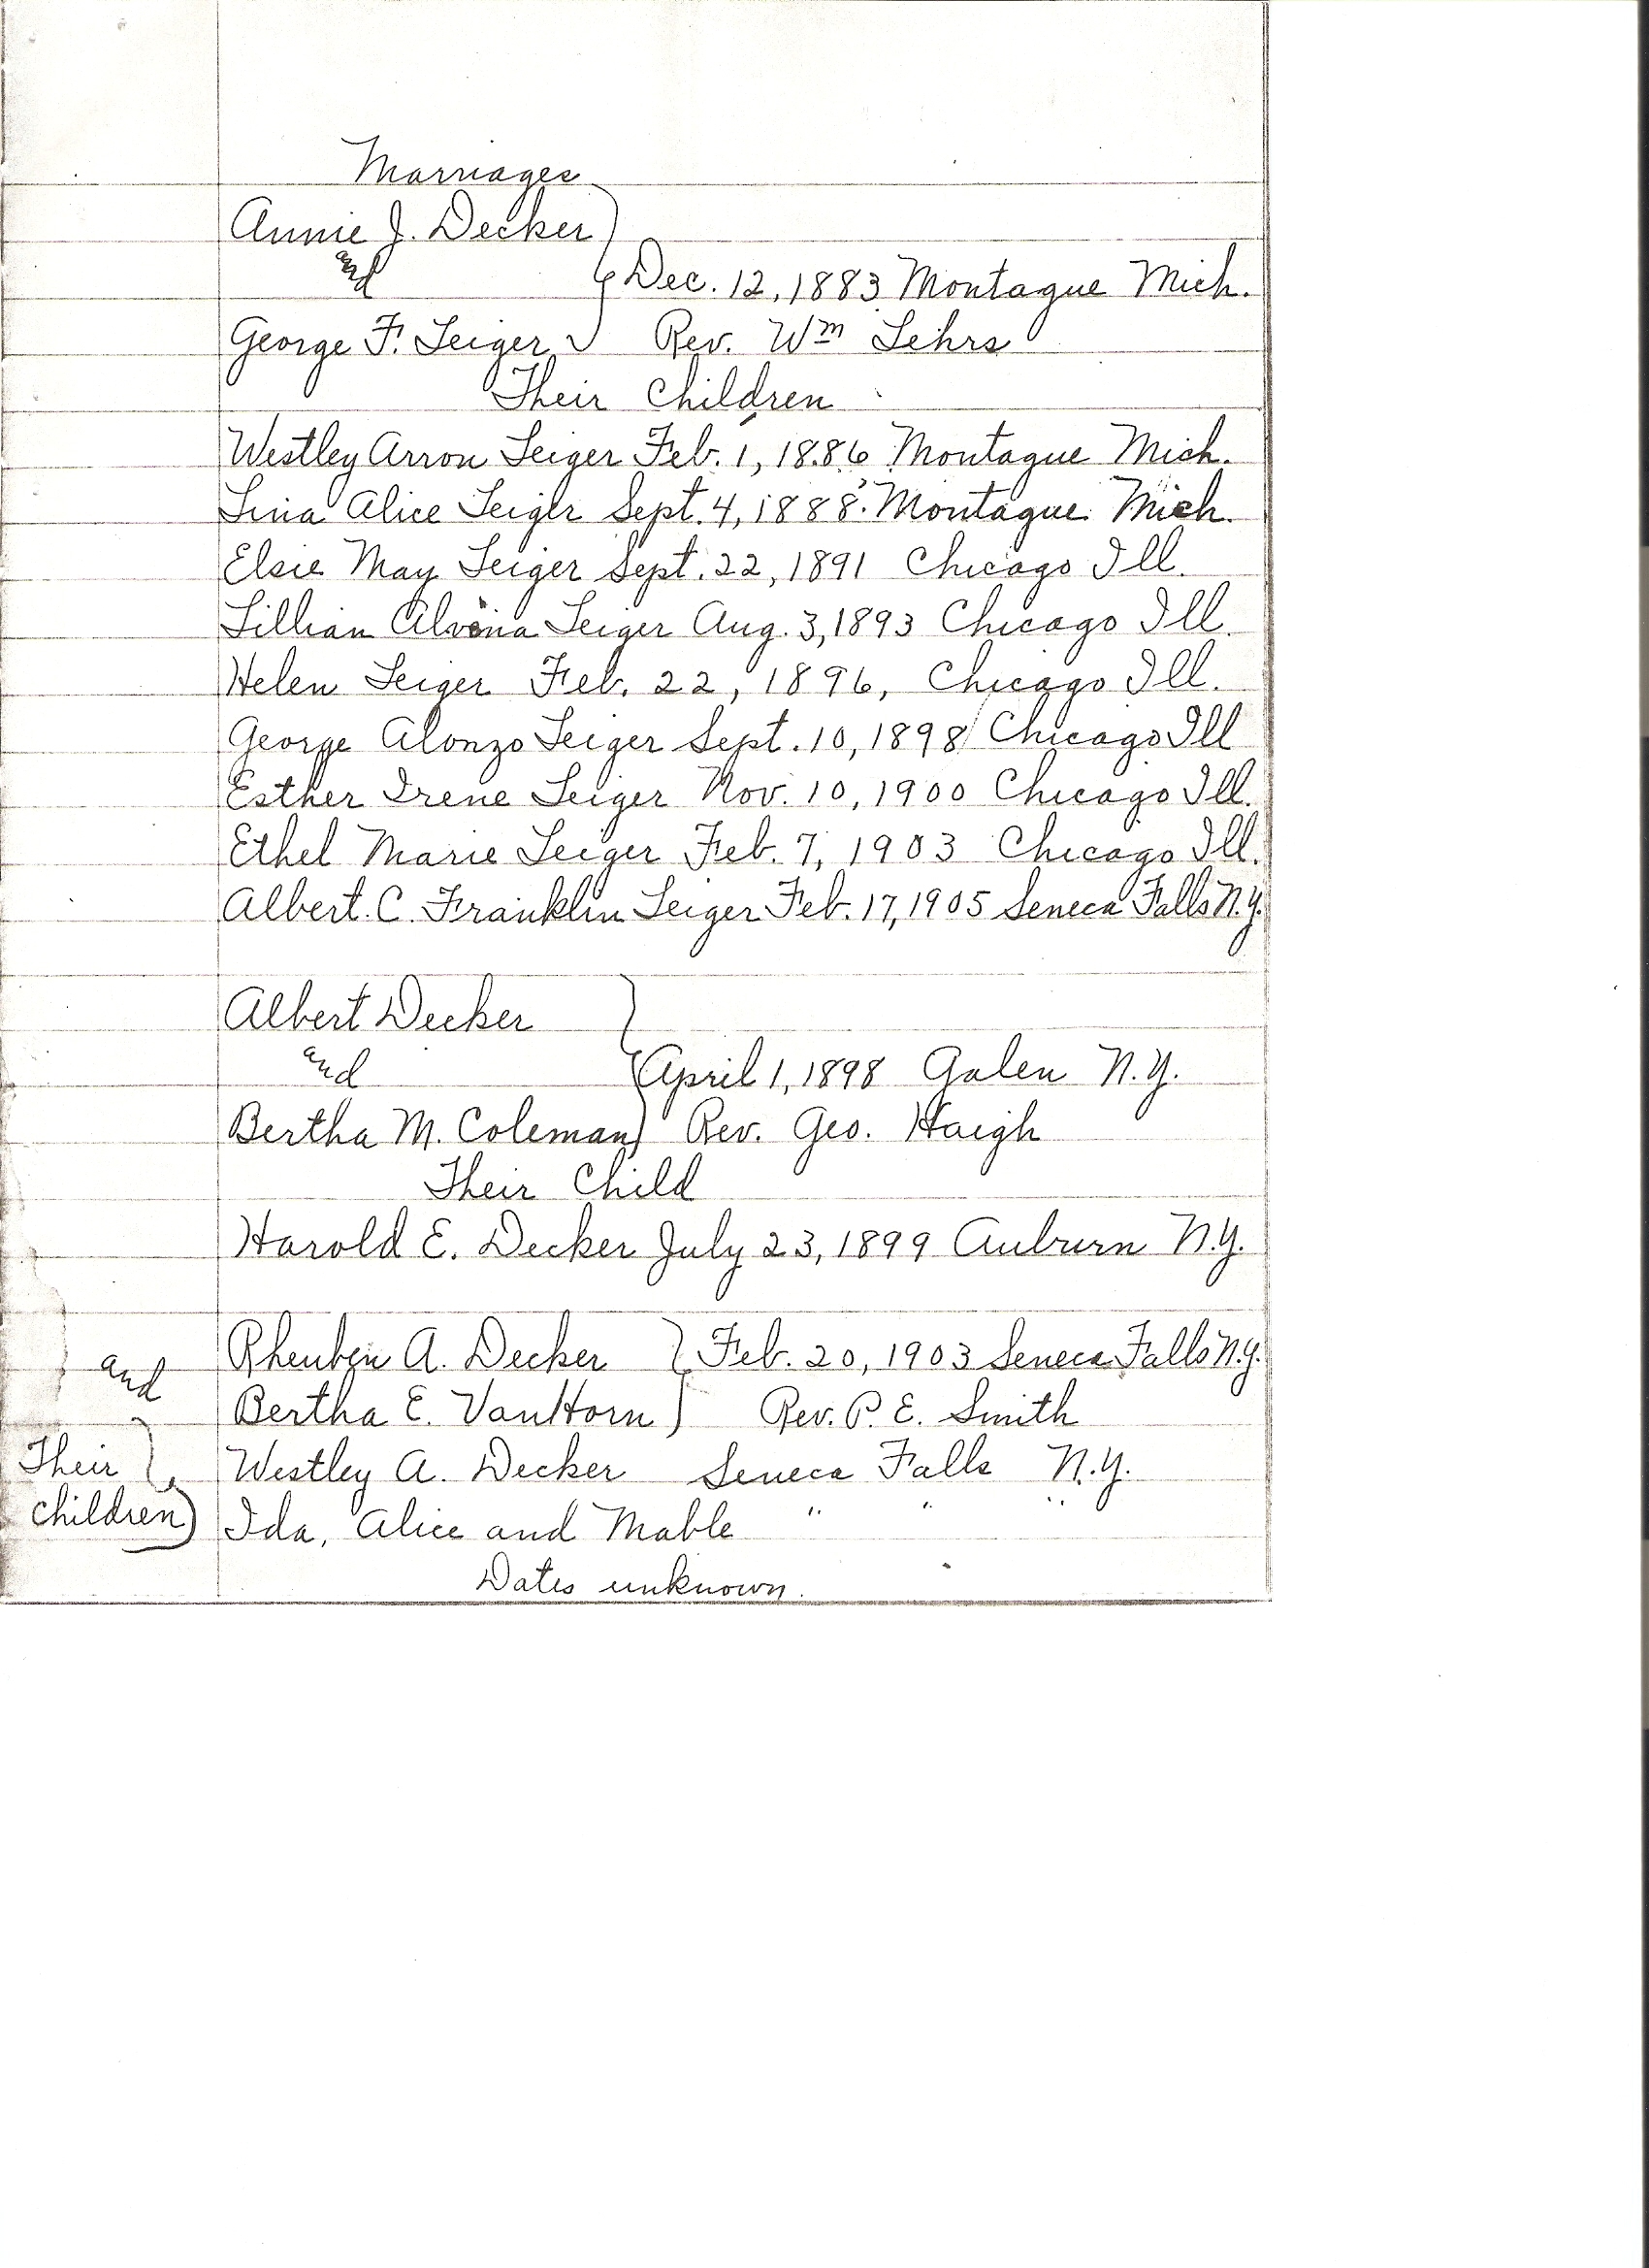 Marriages
Annie J. Decker
and
Dec. 12, 1883 Montague Mich.
George F. Seiger Rev. Wm Lehrs
Their Children
Westley Arron Seiger Feb. 1, 1886 Montague Mich.
Lina Alice Seiger Sept. 4, 1888. Montague Mich.
Elsie May Seiger Sept. 22, 1891 Chicago Ill.
Lillian Alvena Seiger Aug. 3, 1893 Chicago Ill.
Helen Seiger Feb. 22, 1896, Chicago Ill.
George Alonzo Seiger Sept. 10, 1898 Chicago Ill
Esther Irene Seiger Nov. 10, 1900 Chicago Ill.
Ethel Marie Seiger Feb. 7, 1903 Chicago Ill.
Albert C. Franklin Seiger Feb. 17, 1905 Seneca Falls N.Y.
Albert Decker
and April 1, 1898 Galen N.Y.
Bertha M. Coleman Rev. Geo. Haigh
Their Child
Harold E. Decker July 23, 1899 Auburn N.Y.
Rheuben A. Decker Feb. 20, 1903 Seneca Falls N.Y.
and
Bertha E. VanHorn Rev. P. E. Smith
Their Westley A. Decker Seneca Falls N.Y.
children Ida, Alice and Mable " " "
Dates unknown.